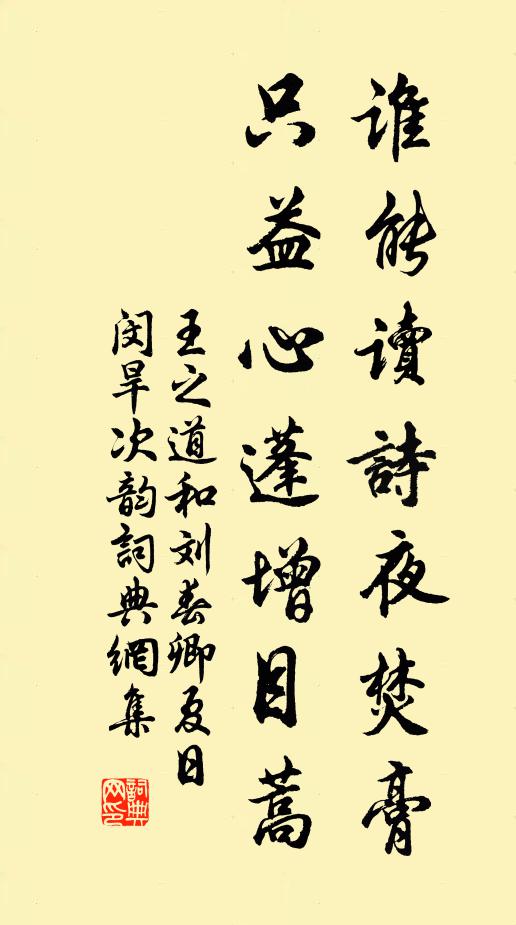 谁能讀詩夜焚膏
只益心蓬增目蒿
王之道和刘春卿夏日
闵旱次韵詞典網集
詞典网印